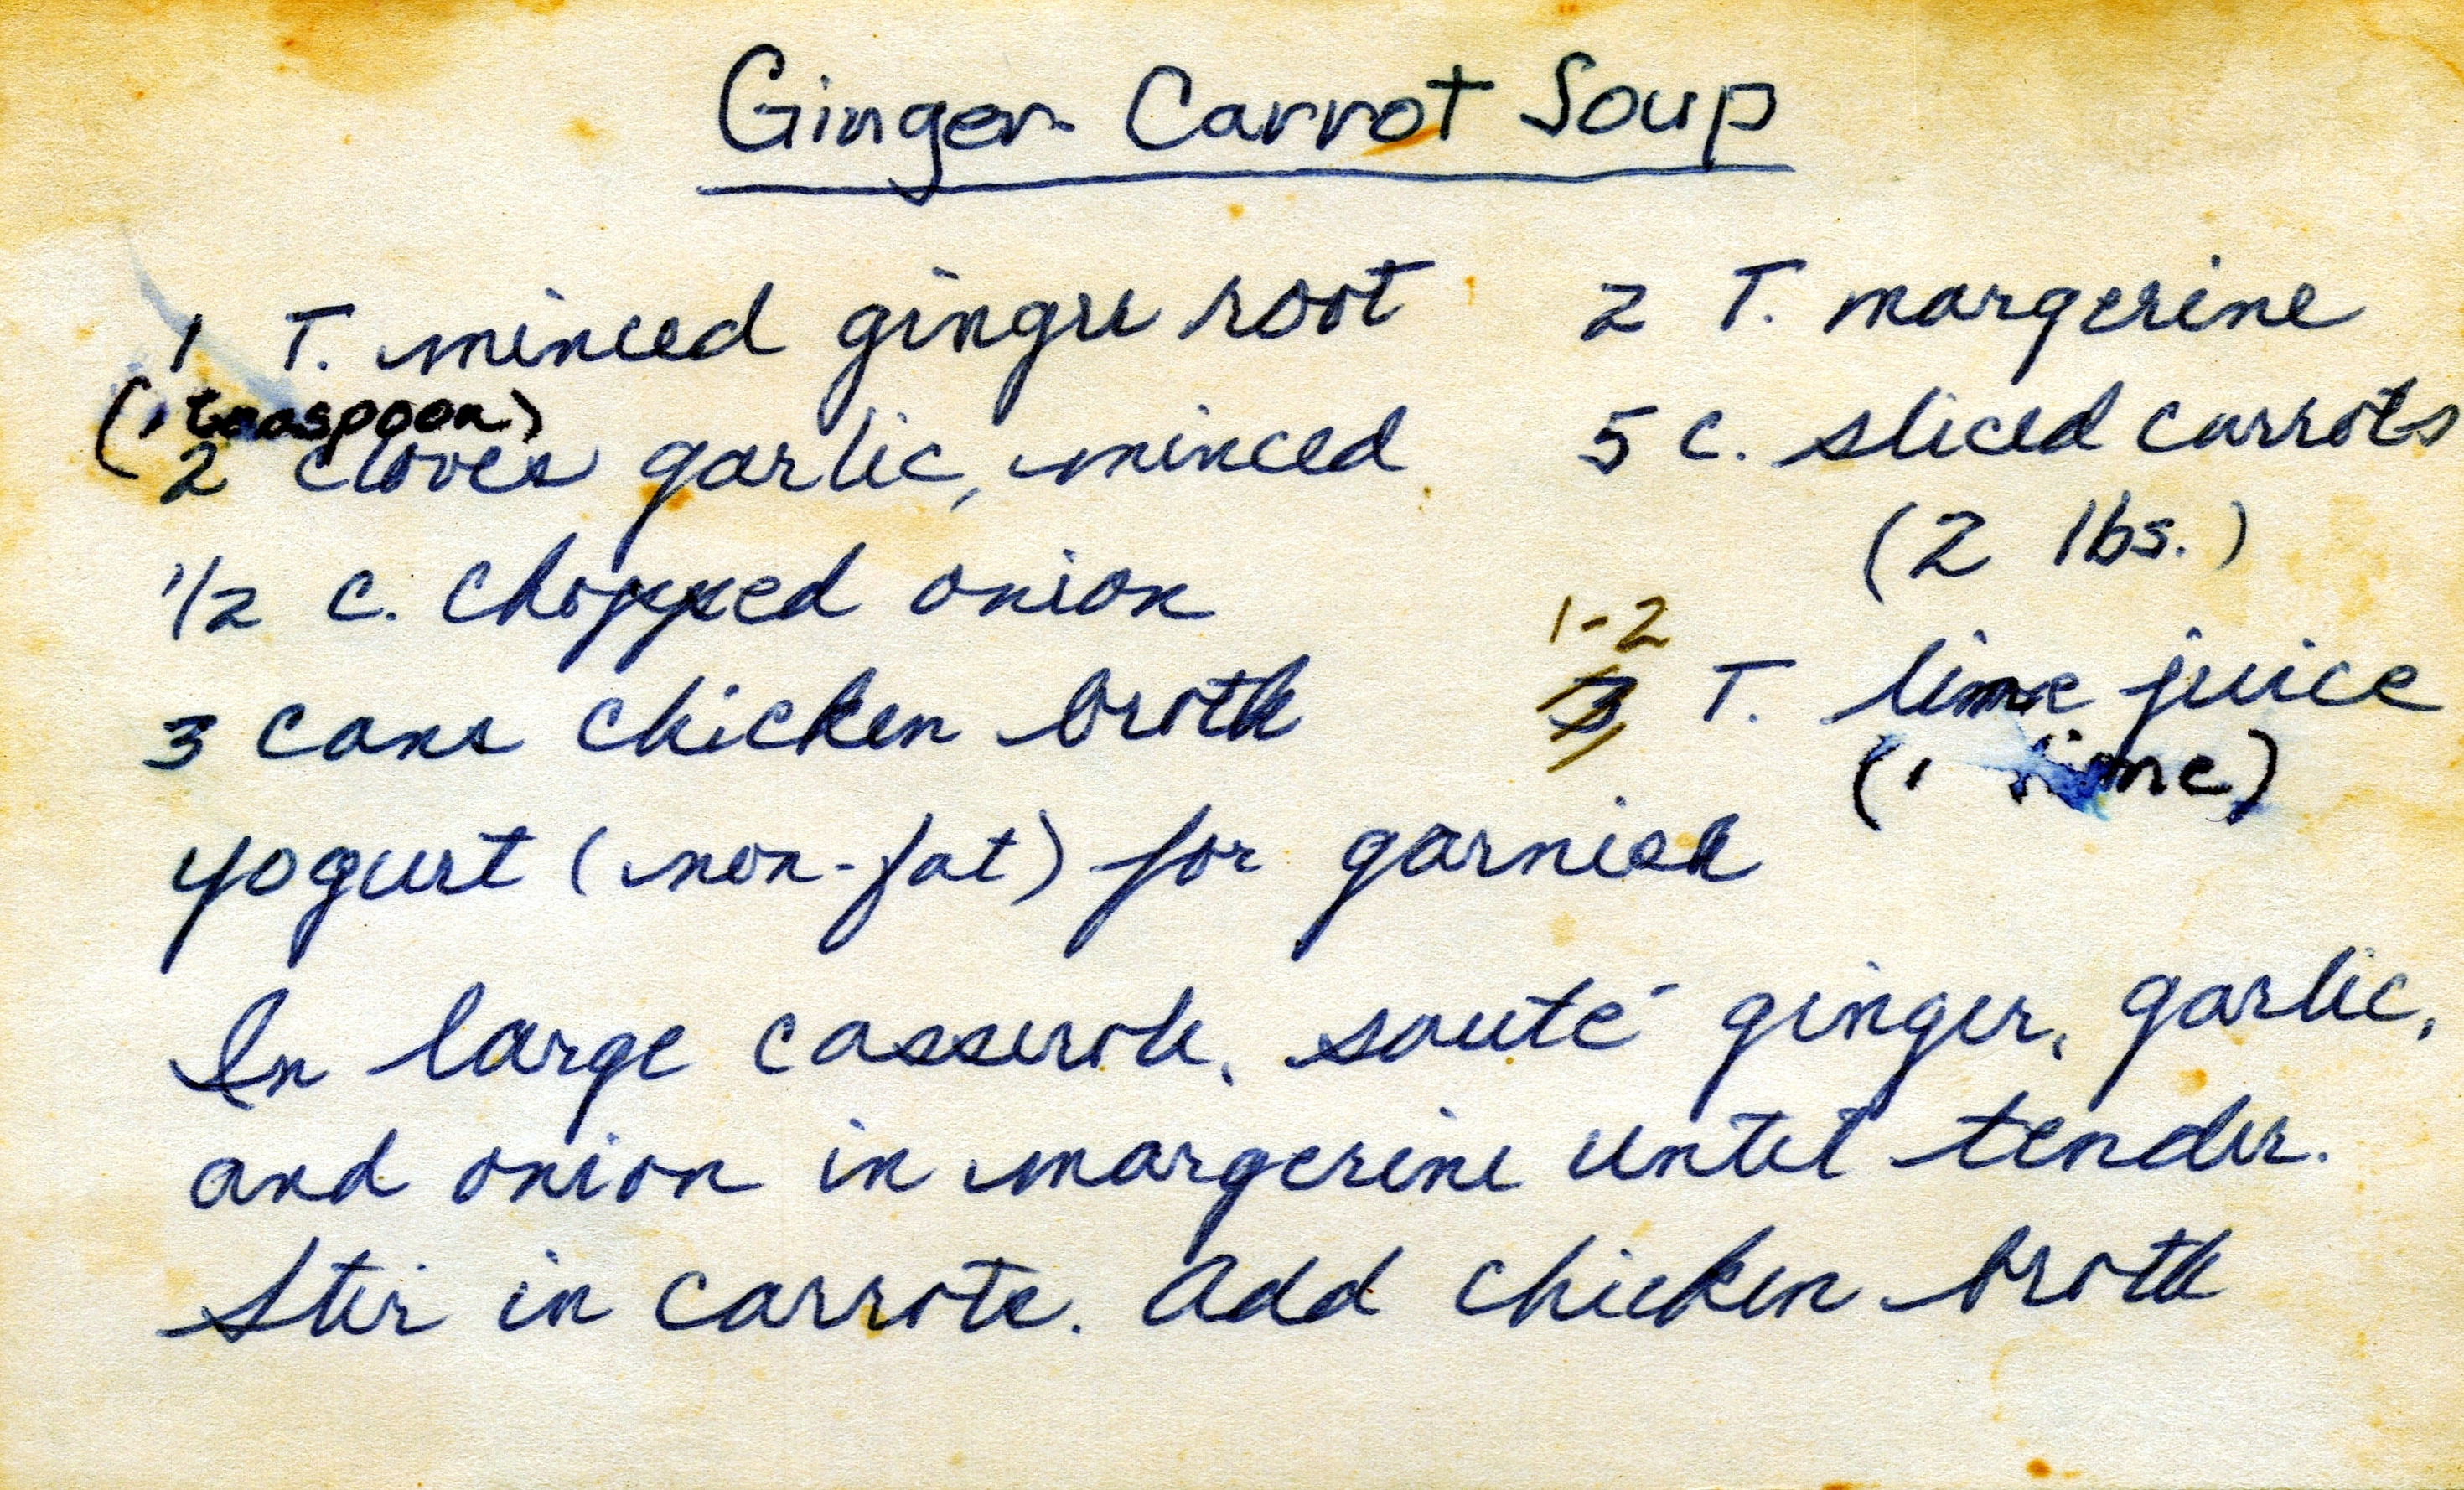 Ginger Carrot Soup
1 T. minced ginger root
(1 teaspoon)
2 cloves garlic, minced
1/2 c. chopped onion
3 cans chicken broth
2 T. margerine
5 c. sliced carrots
(2 lbs.)
1-2
3 T. lime juice
(1 lime)
yogurt (non-fat) for garnish
In large casserole, sauté ginger, garlic,
and onion in margerine until tender.
Stir in carrots. Add chicken broth